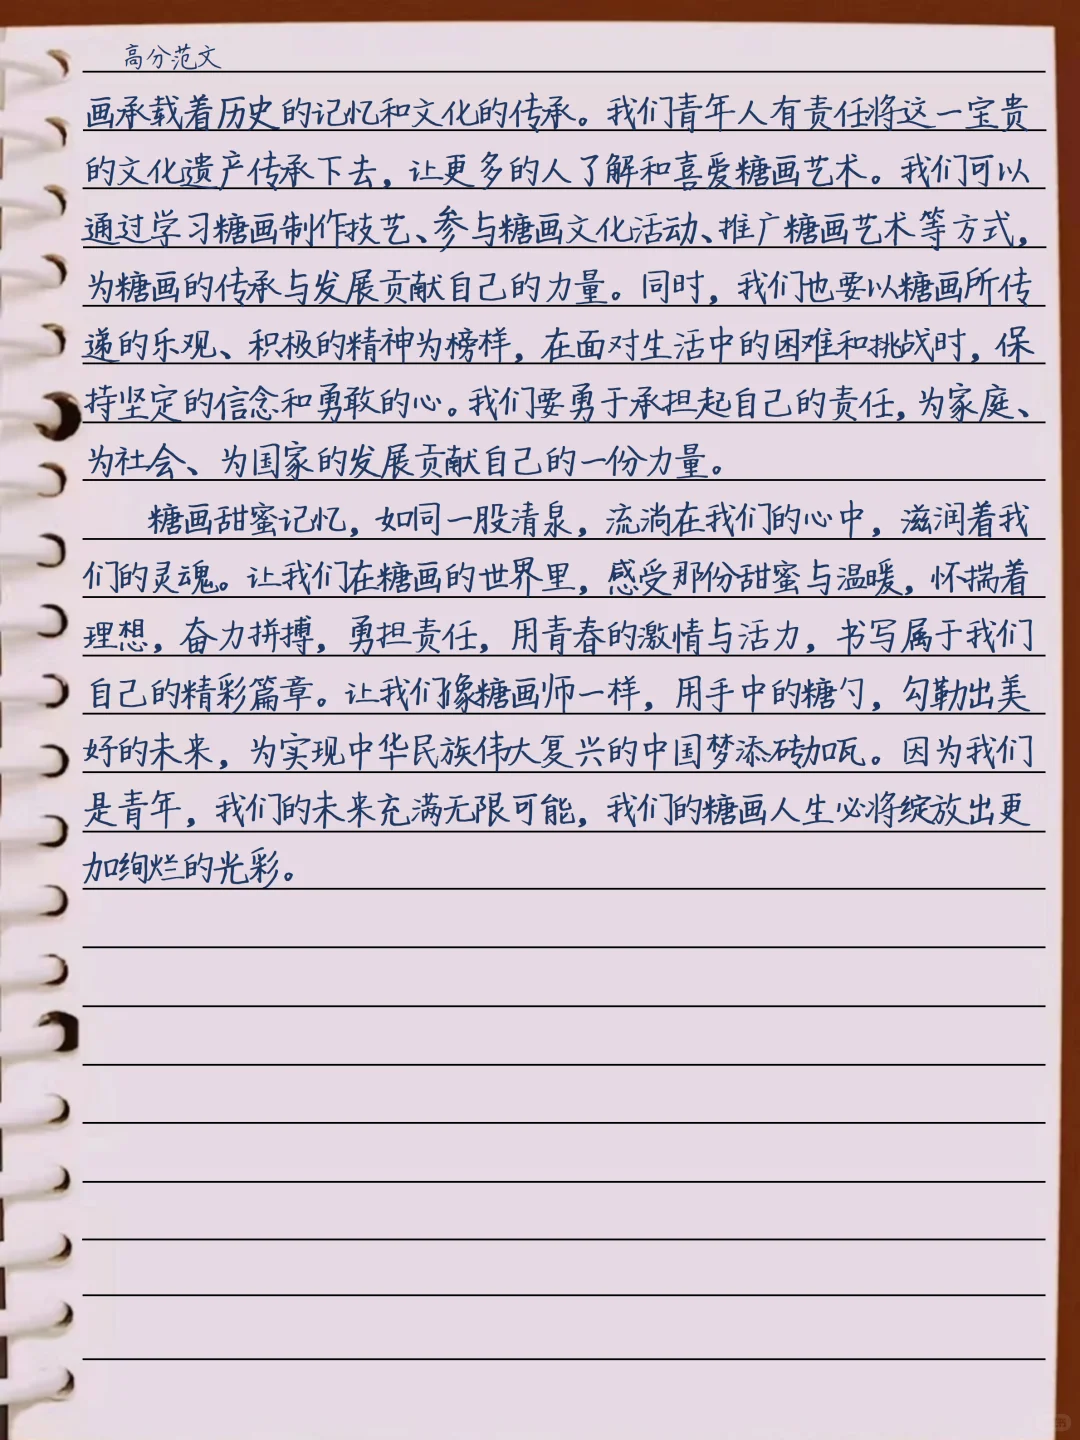 高分范文
画承载着历史的记忆和文化的传承。我们青年人有责任将这一宝贵
的文化遗产传承下去，让更多的人了解和喜爱糖画艺术。我们可以
通过学习糖画制作技艺、参与糖画文化活动、推广糖画艺术等方式，
为糖画的传承与发展贡献自己的力量。同时，我们也要以糖画所传
递的乐观、积极的精神为榜样，在面对生活中的困难和挑战时，保
持坚定的信念和勇敢的心。我们要勇于承担起自己的责任，为家庭、
为社会、为国家的发展贡献自己的一份力量。
糖画甜蜜记忆，如同一股清泉，流淌在我们的心中，滋润着我
们的灵魂。让我们在糖画的世界里，感受那份甜蜜与温暖，怀揣着
理想，奋力拼搏，勇担责任，用青春的激情与活力，书写属于我们
自己的精彩篇章。让我们像糖画师一样，用手中的糖勺，勾勒出美
好的未来，为实现中华民族伟大复兴的中国梦添砖加瓦。因为我们
是青年，我们的未来充满无限可能，我们的糖画人生必将绽放出更
加绚烂的光彩。